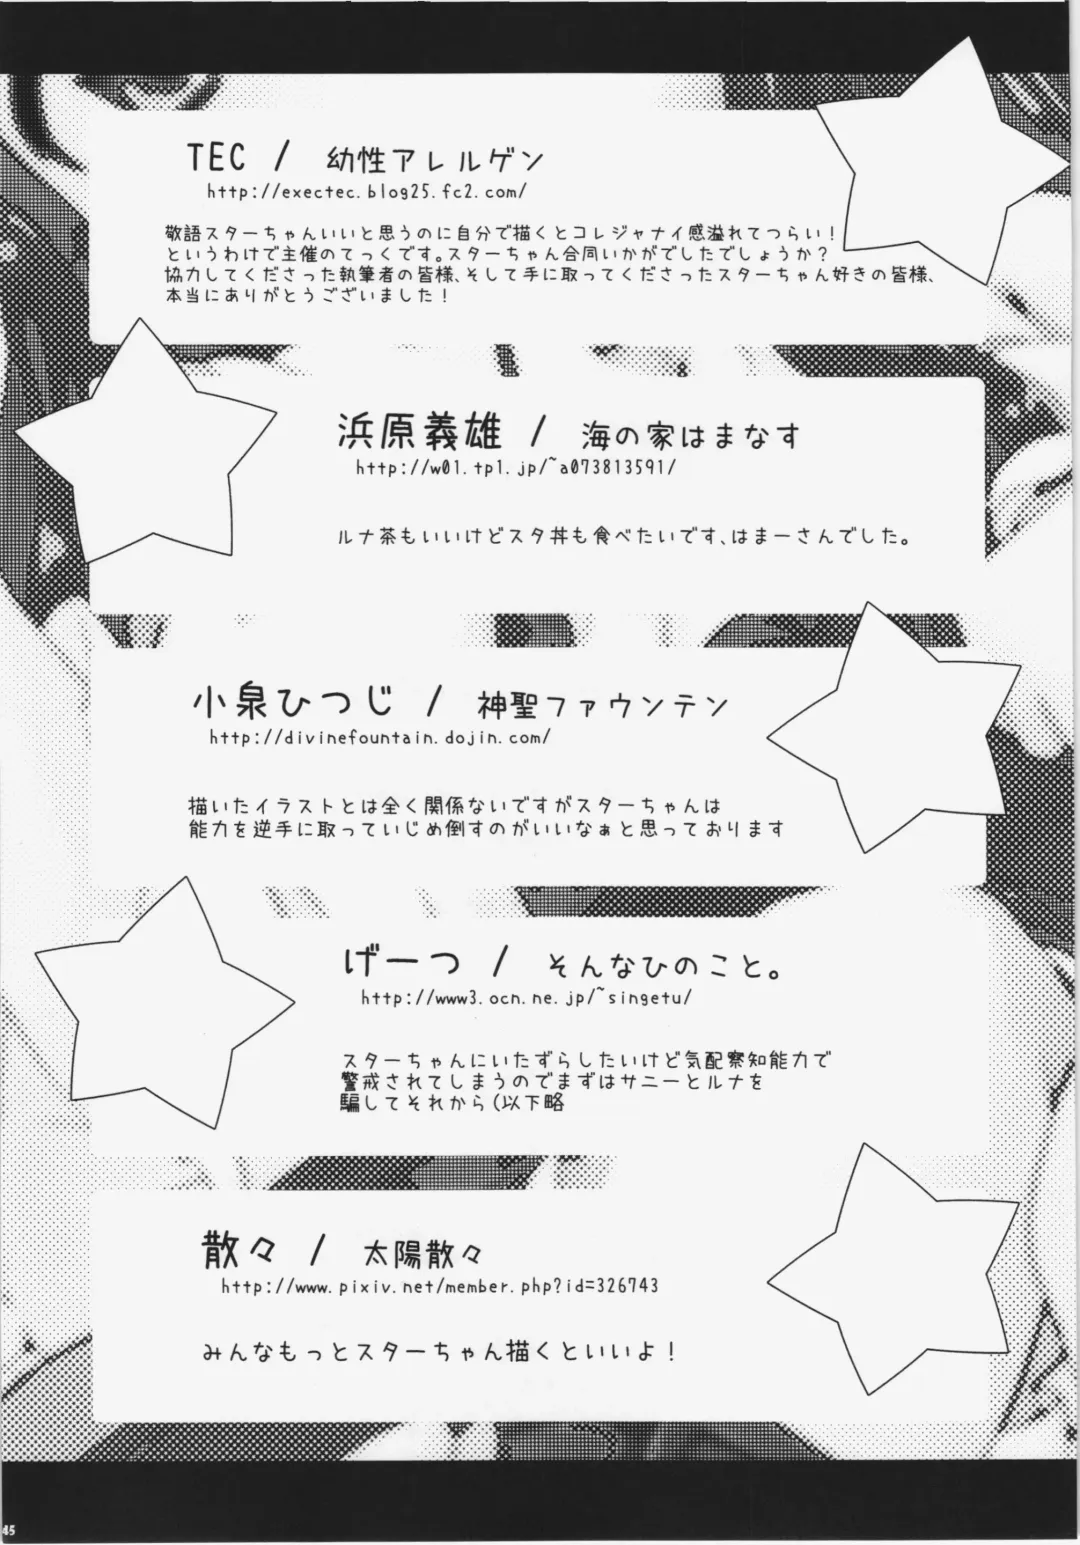 TEC / 幼性アレルゲン
http://exectec.blog25.fc2.com/
敬語スターちゃんいいと思うのに自分で描くとコレジャナイ感溢れてつらい!
というわけで主催のてっくです。スターちゃん合同いかがでしたでしょうか?
協力してくださった執筆者の皆様、そして手に取ってくださったスターちゃん好きの皆様、
本当にありがとうございました!
浜原義雄 / 海の家はまなす
http://w01.tp1.jp/~a073813591/
ルナ茶もいいけどスタ丼も食べたいです、はまーさんでした。
小泉ひつじ / 神聖ファウンテン
http://divinefountain.dojin.com/
描いたイラストとは全く関係ないですがスターちゃんは
能力を逆手に取っていじめ倒すのがいいなぁと思っております
げーつ / そんなひのこと。
http://www3.ocn.ne.jp/~singetu/
スターちゃんにいたずらしたいけど気配察知能力で
警戒されてしまうのでまずはサニーとルナを
騙してそれから(以下略
散々 / 太陽散々
http://www.pixiv.net/member.php?id=326743
みんなもっとスターちゃん描くといいよ!
45